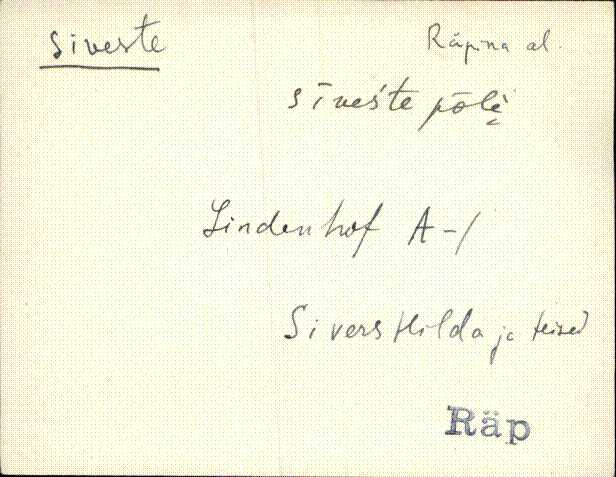 siveste
Räpina al.
sīveste põlè
Lindenhof A-1
Sivers Hilda ja teised
Räp